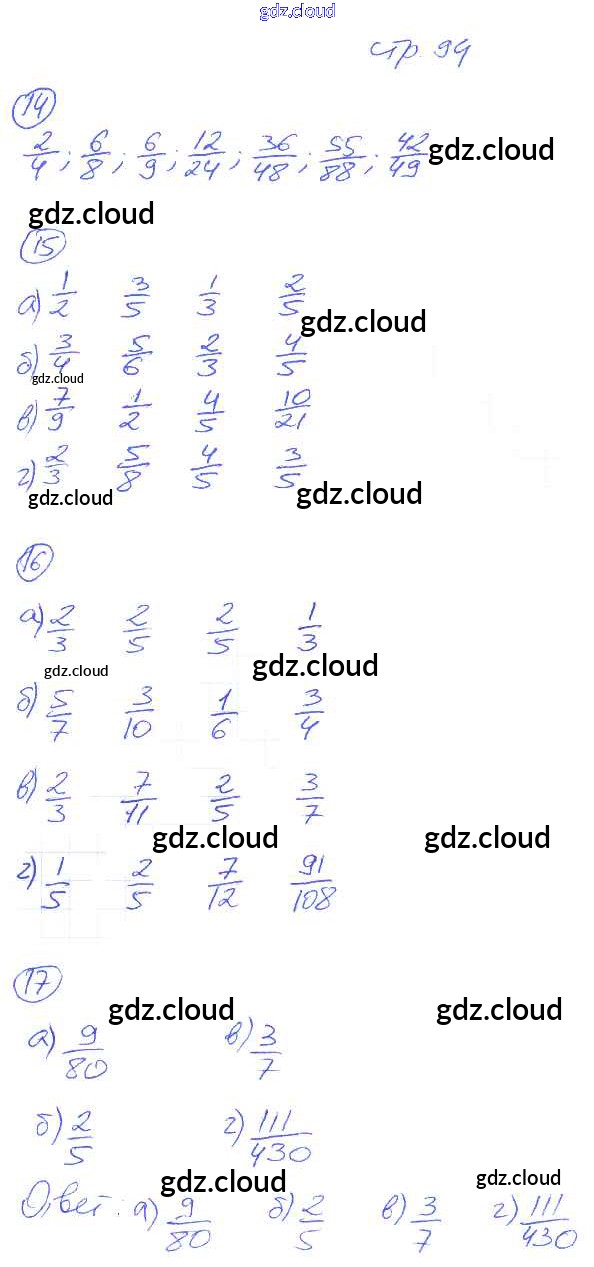 gdz.cloud
стр. 94
14
2/4; 6/8; 6/9; 12/24; 36/48; 55/88; 42/49 gdz.cloud
gdz.cloud
15
а) 1/2 3/5 1/3 2/5
gdz.cloud
б) 3/4 5/6 2/3 4/5
gdz.cloud
в) 7/9 1/2 4/5 10/21
г) 2/3 5/8 4/5 3/5
gdz.cloud gdz.cloud
16
а) 2/3 2/5 2/5 1/3
gdz.cloud gdz.cloud
б) 5/7 3/10 1/6 3/4
в) 2/3 7/11 2/5 3/7
gdz.cloud gdz.cloud
г) 1/5 2/5 7/12 91/108
17
gdz.cloud gdz.cloud
а) 9/80 в) 3/7
б) 2/5 г) 111/430
gdz.cloud gdz.cloud
Ответ: а) 9/80 б) 2/5 в) 3/7 г) 111/430